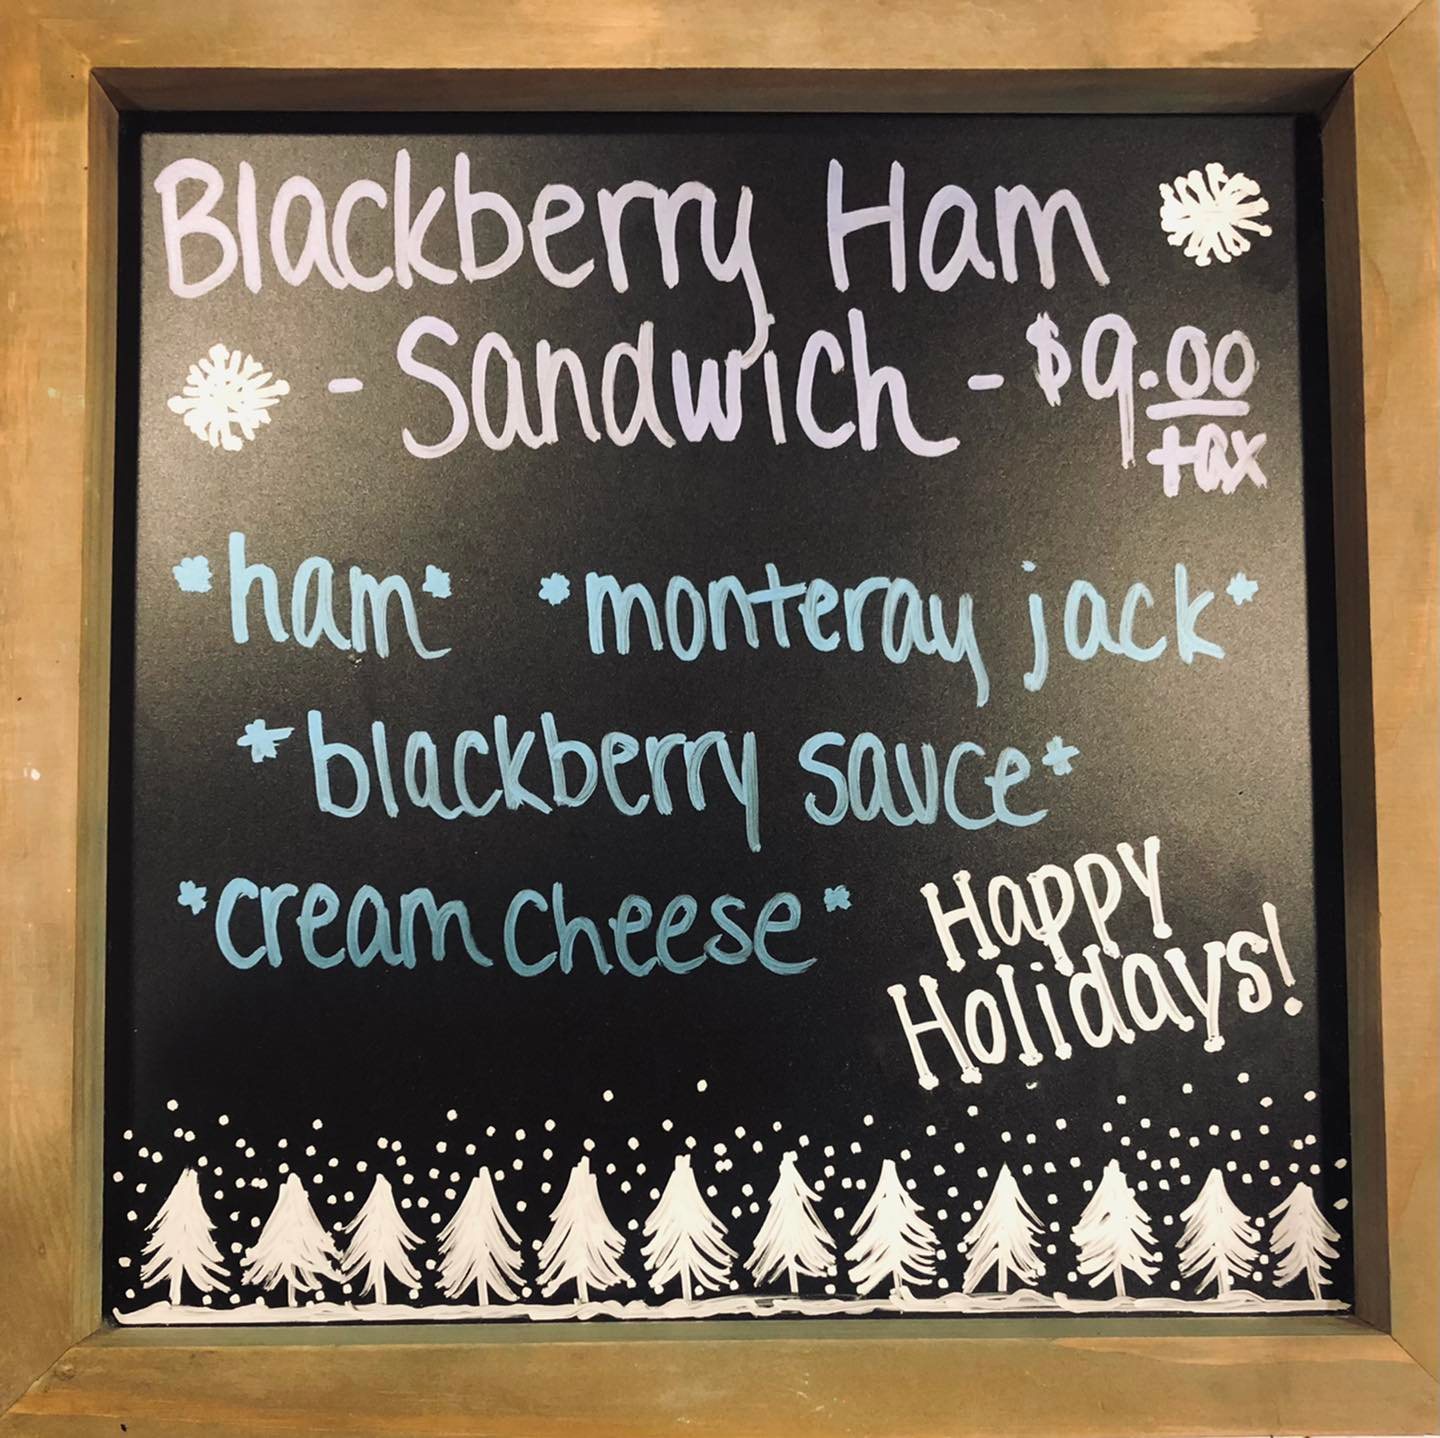 Blackberry Ham
- Sandwich - $9.00
tax
*ham* *monteray jack*
*blackberry sauce*
*cream cheese*
Happy
Holidays!